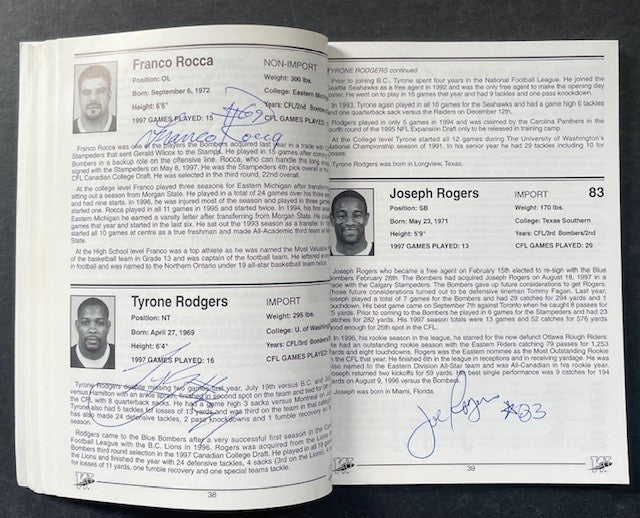 Franco Rocca
NON-IMPORT
Position: OL
Weight: 300 lbs.
Born: September 6, 1972
College: Eastern
Height: 6'5"
Years: CFL/2nd Bombers
1997 GAMES PLAYED: 15
CFL GAMES PLAYED
#69
Franco Rocca
Franco Rocca was one of the players the Bombers acquired last year in a trade with
Stampeders that sent Gerald Wilcox to the Stamps. He played in 15 games after coming
Bombers in a backup role on the offensive line. Rocca, who can handle the long
signed with the Stampeders on May 8, 1997. He was the Stampeders 4th pick overall
CFL Canadian College Draft. He was selected in the third round, 22nd overall.
At the college level Franco played three seasons for Eastern Michigan after transfer
sitting out a season from Morgan State. He played in a total of 24 games over his three
and had nine starts. In 1996, he was injured most of the season and played in three
started one. Rocca played in all 11 games in 1995 and started twice. In 1994, his first
Eastern Michigan he earned a varsity letter after transferring from Morgan State. He
games that year and started in the last six. He sat out the 1993 season as a transfer.
started all 10 games at centre as a true freshman and made All-Academic third team
State.
At the High School level Franco was a top athlete as he was named the Most Valuable
of the basketball team in Grade 13 and was captain of the football team. He lettered
in football and was named to the Northern Ontario under 19 all-star basketball team
Tyrone Rodgers
IMPORT
Position: NT
Weight: 295 lbs.
Born: April 27, 1969
College: U. of
Height: 6'4"
Years: CFL/3rd
1997 GAMES PLAYED: 16
CFL GAMES PLAYED
Tyrone Rodgers despite missing two games last year, July 19th versus B.C. and
versus Hamilton with an ankle sprain, finished in second spot on the team and tied for
the CFL with 8 quarterback sacks. He had a game high 3 sacks versus Montreal on
Tyrone also had 5 tackles for losses of 13 yards and was third on the team in that
has also made 24 defensive tackles, 2 pass knockdowns and 1 fumble recovery
season.
Rodgers came to the Blue Bombers after a very successful first season in the
Football League with the B.C. Lions in 1996. Rogers was acquired from the Lions
Bombers third round selection in the 1997 Canadian College Draft. He played in all
the Lions and finished the year with 24 defensive tackles, 4 sacks (3rd on the Lions), 4
for losses of 11 yards, one fumble recovery and one special teams tackle.
38
TYRONE RODGERS continued
Prior to joining B.C., Tyrone spent four years in the National Football League. He joined the
Seattle Seahawks as a free agent in 1992 and was the only free agent to make the opening day
roster. He went on to play in 16 games that year and had 9 tackles and one pass knockdown.
In 1993, Tyrone again played in all 16 games for the Seahawks and had a game high 6 tackles
and one quarterback sack versus the Raiders on December 12th.
Rodgers played in only 5 games in 1994 and was claimed by the Carolina Panthers in the
fourth round of the 1995 NFL Expansion Draft only to be released in training camp.
At the College level Tyrone started all 12 games during The University of Washington's
National Championship season of 1991. In his senior year he had 29 tackles including 10 for
losses.
Tyrone Rodgers was born in Longview, Texas.
Joseph Rogers
IMPORT
83
Position: SB
Weight: 170 lbs.
Born: May 23, 1971
College: Texas Southern
Height: 5'9"
Years: CFL/3rd Bombers/2nd
1997 GAMES PLAYED: 13
CFL GAMES PLAYED: 29
Joseph Rogers who became a free agent on February 15th elected to re-sign with the Blue
Bombers February 26th. The Bombers had acquired Joseph Rogers on August 18, 1997 in a
trade with the Calgary Stampeders. The Bombers gave up future considerations to get Rogers.
Those future considerations turned out to be defensive lineman Tommy Fagan. Last year,
Joseph played a total of 7 games for the Bombers and had 29 catches for 294 yards and 1
touchdown. His best game came on September 7th against Toronto when he caught 8 passes for
yards. Prior to coming to the Bombers he played in 6 games for the Stampeders and had 23
catches for 282 yards. His 1997 season totals were 13 games and 52 catches for 576 yards
good enough for 25th spot in the CFL.
In 1996, his rookie season in the league, he starred for the now defunct Ottawa Rough Riders.
He had an outstanding rookie season with the Eastern Riders catching 79 passes for 1,253
yards and eight touchdowns. Rogers was the Eastern nominee as the Most Outstanding Rookie
in the CFL that year. He finished 6th in the league in receptions and in receiving yardage. He was
also named to the Eastern Division All-Star team and was All-Canadian in his rookie year.
Joseph returned two kickoffs for 59 yards. His best single performance was 9 catches for 194
yards on August 9, 1996 versus the Bombers.
Joseph was born in Miami, Florida.
Joe Rogers #83
39